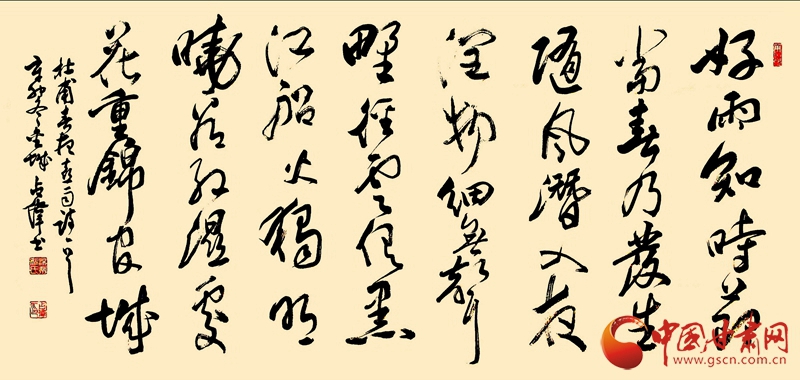 好雨知時節
當春乃發生
隨風潛入夜
潤物細無聲
野徑雲俱黑
江船火獨明
曉看紅濕處
花重錦官城
杜甫春夜喜雨詩一首
辛卯冬金城占偉書
中国甘肃网
www.gscn.com.cn